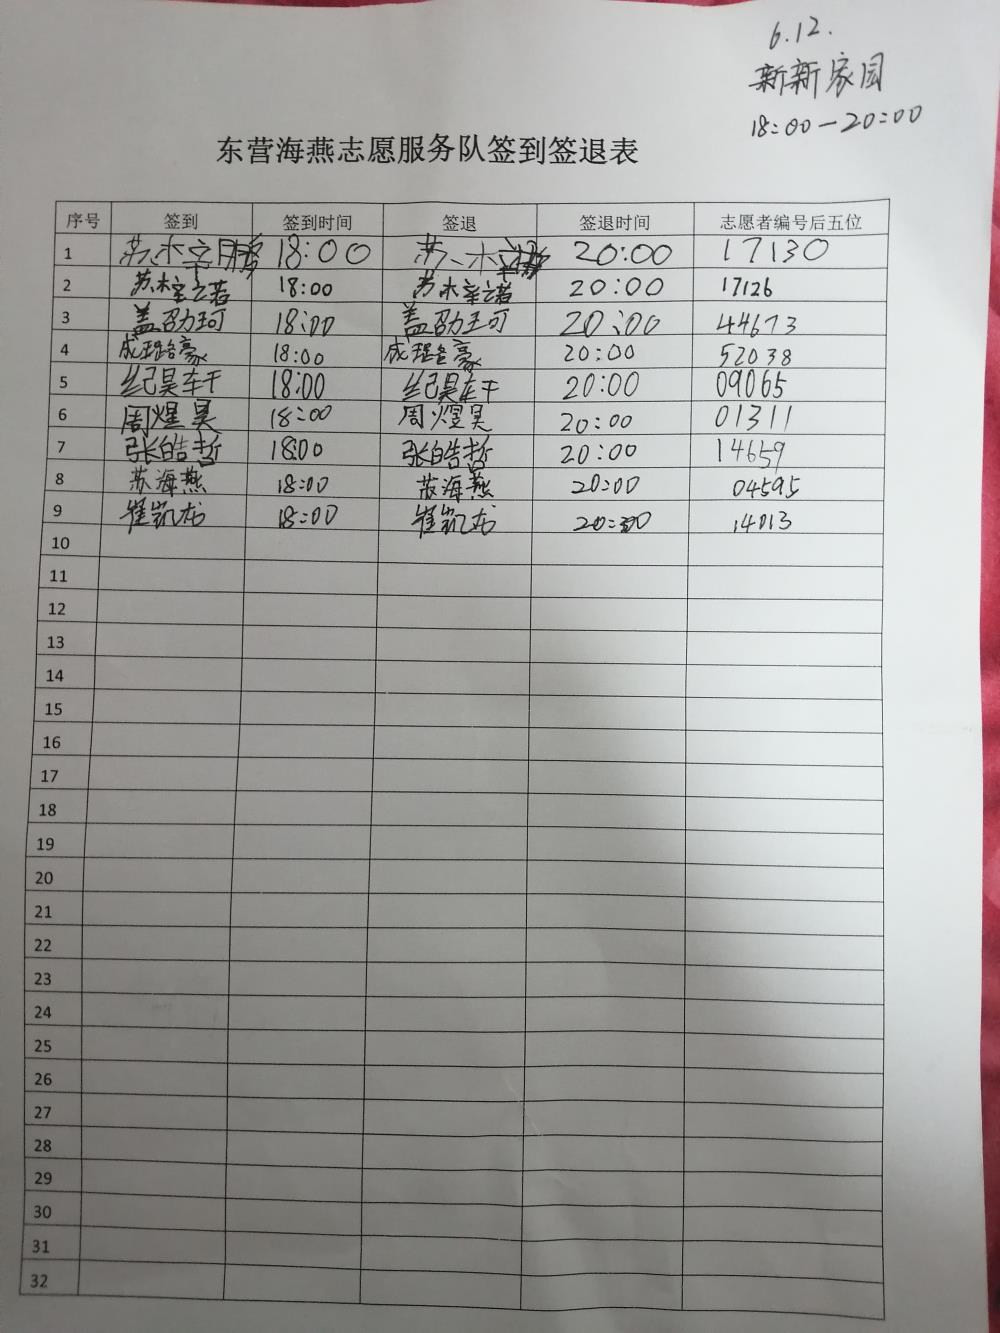 6.12.
新新家园
18:00-20:00
东营海燕志愿服务队签到签退表
序号 签到 签到时间 签退 签退时间 志愿者编号后五位
1 苏 18:00 苏 20:00 17130
2 苏梓若 18:00 苏梓若 20:00 17126
3 盖劭珂 18:00 盖劭珂 20:00 44673
4 成璐豪 18:00 成璐豪 20:00 52038
5 纪昊轩 18:00 纪昊轩 20:00 09065
6 周煜昊 18:00 周煜昊 20:00 01311
7 张皓哲 18:00 张皓哲 20:00 14659
8 苏海燕 18:00 苏海燕 20:00 04595
9 崔凯龙 18:00 崔凯龙 20:00 14013
10
11
12
13
14
15
16
17
18
19
20
21
22
23
24
25
26
27
28
29
30
31
32